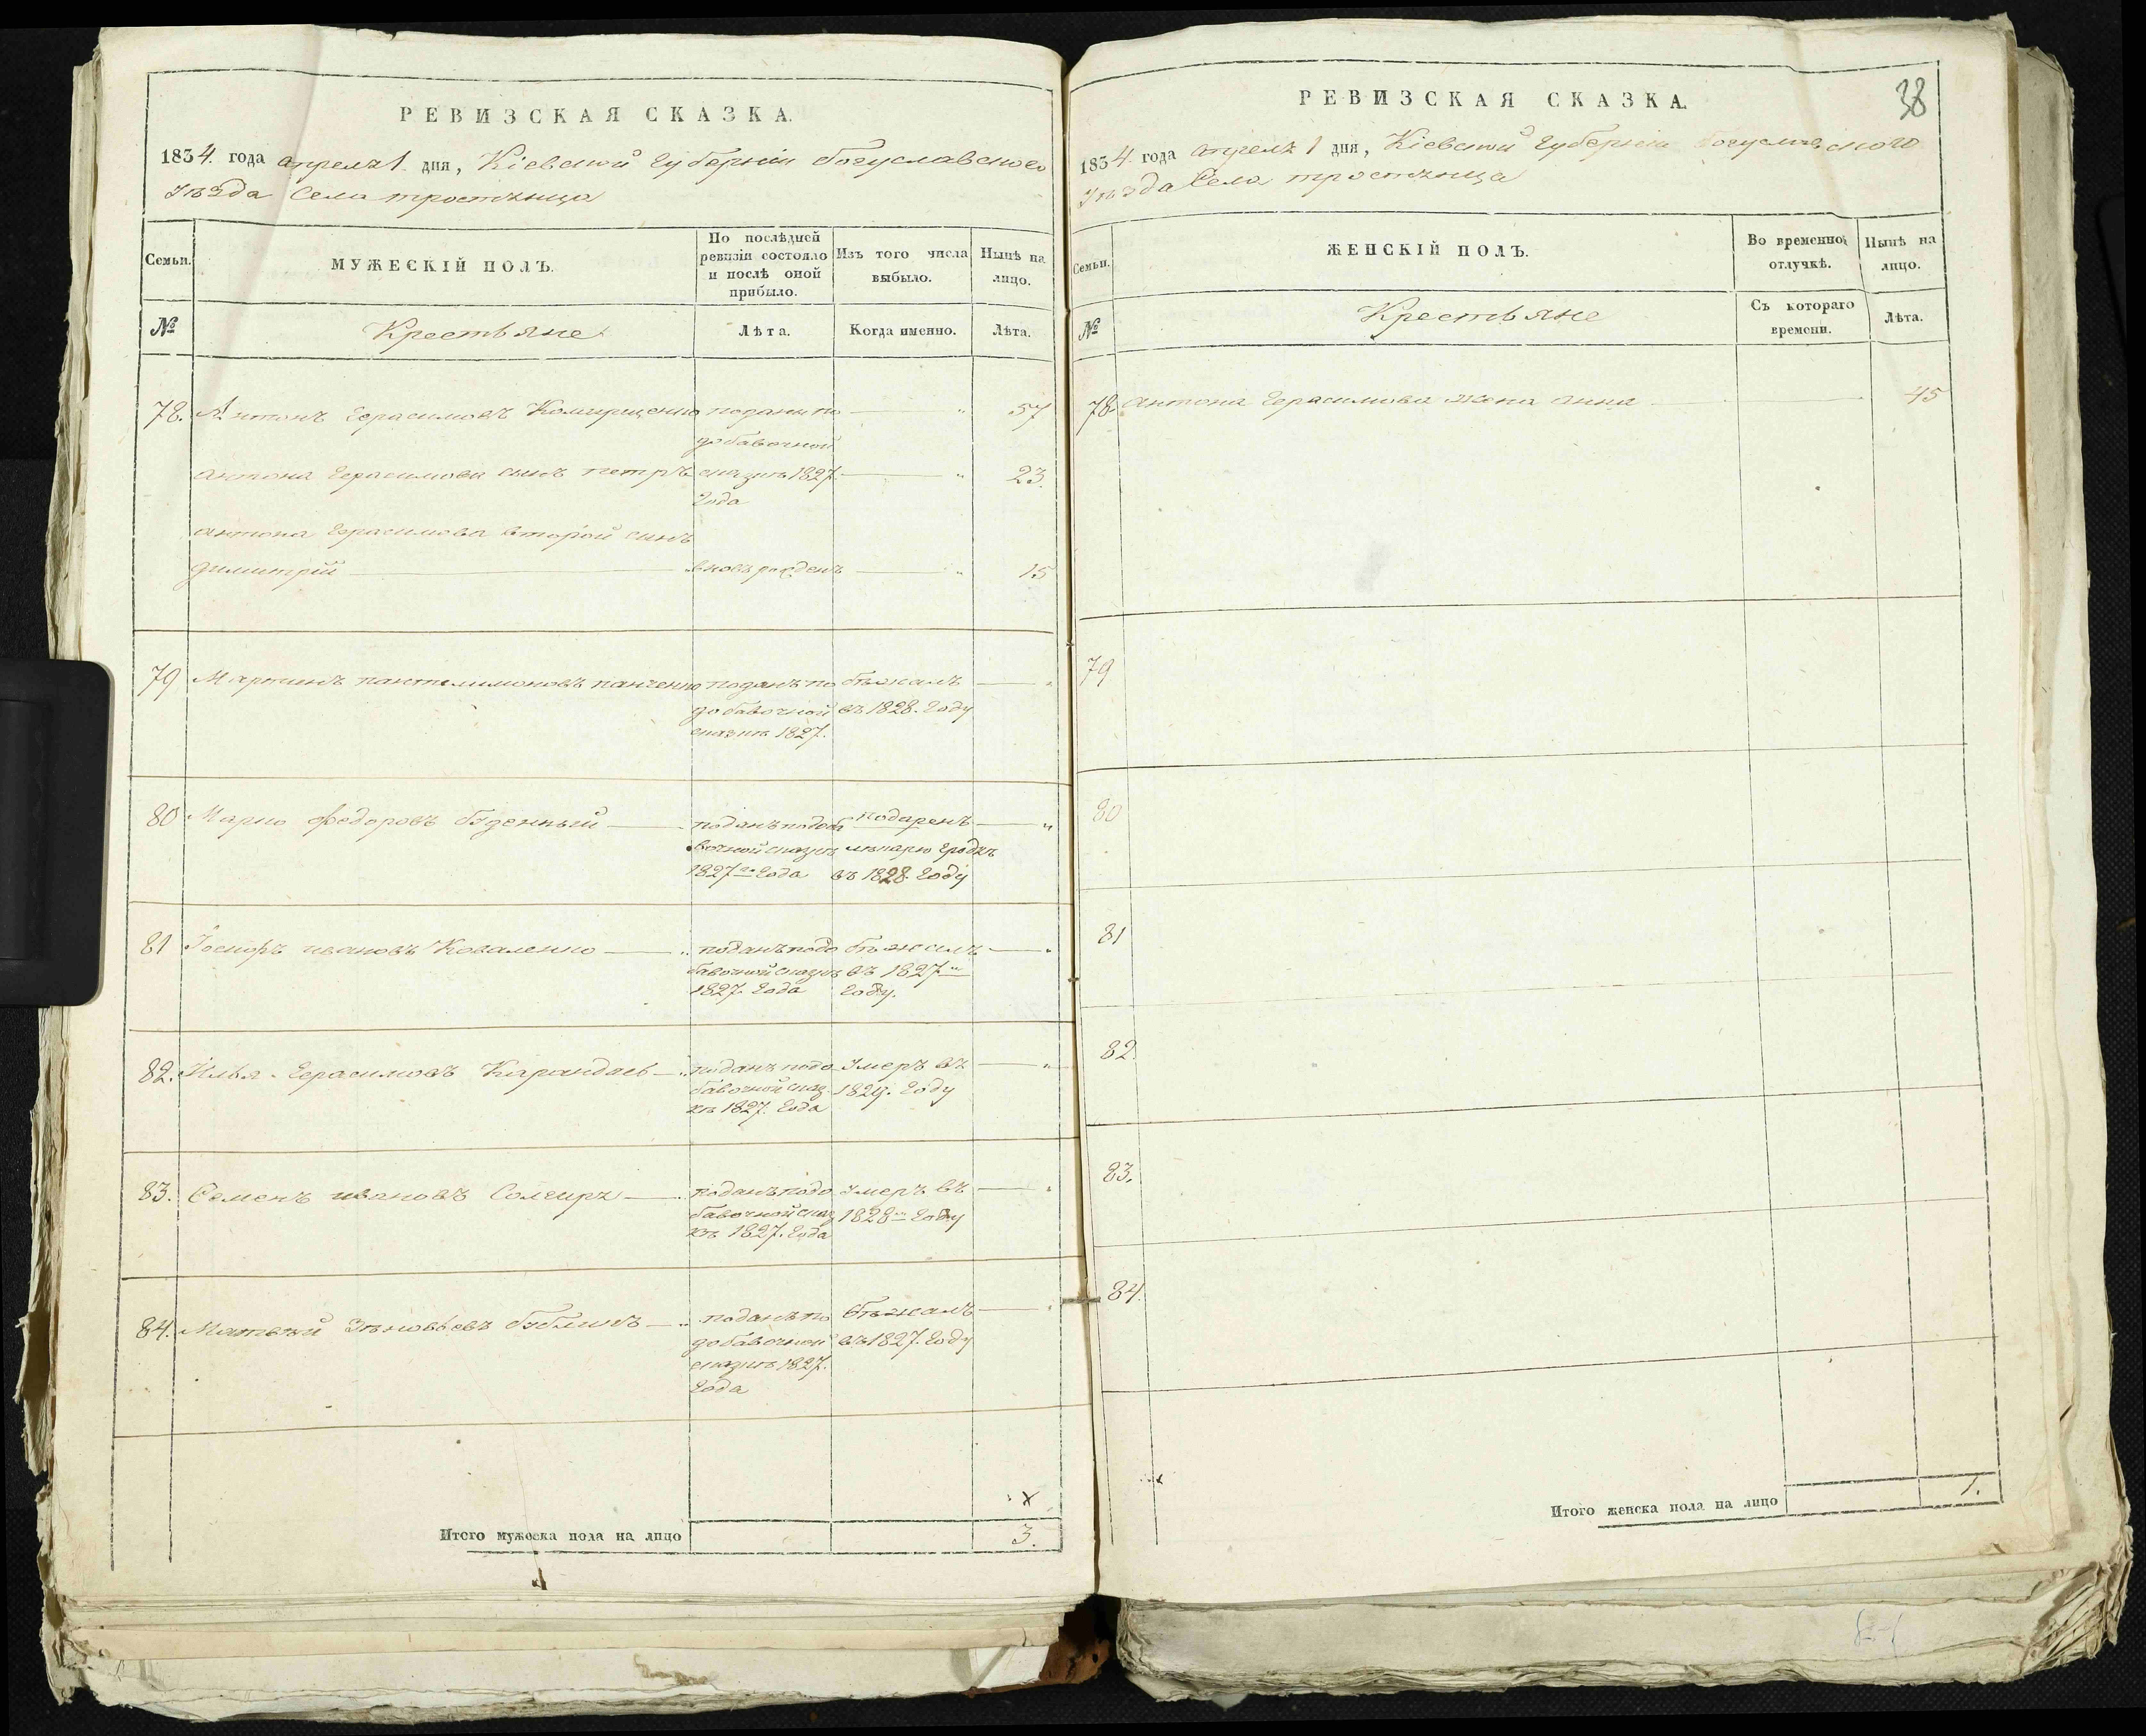 РЕВИЗСКАЯ СКАЗКА.
1834. года апреля 1. дня, Кіевской губерніи богуславского
Уѣзда Села тростянца
Семьи.
МУЖЕСКІЙ ПОЛЪ.
По послѣдней
ревизіи состояло
и послѣ оной
прибыло.
Изъ того числа
выбыло.
Нынѣ на
лицо.
№
Крестьяне
Лѣта.
Когда именно.
Лѣта.
78. Антонъ Герасимовъ поданы по 57
добавочной
антона Герасимова сынъ петръ сказкѣ 1827. 23.
Года
антона Герасимова второй сынъ
димитрій вновь рожденъ 15
79 Мартинъ пантелимоновъ панченко поданъ по бѣжалъ
добавочной въ 1828. Году
сказкѣ 1827.
80 Марко федоровъ буденный поданъ по доба подаренъ
вочной сказкѣ лѣкарю
1827го Года въ 1828. Году
81 Іосифъ ивановъ Коваленко поданъ по до бѣжалъ
бавочной сказкѣ въ 1827м
1827. Года Году.
82. Илья Герасимовъ поданъ по до Умеръ въ
бавочной сказ 1829. Году
кѣ 1827. Года
83. Семенъ ивановъ поданъ по до Умеръ въ
бавочной сказ 1828м Году
кѣ 1827. Года
84. Матвѣй Зѣновьевъ бубликъ поданъ по бѣжалъ
добавочной въ 1827. Году
сказкѣ 1827.
Года
Итого мужеска пола на лицо 3.
38
РЕВИЗСКАЯ СКАЗКА.
1834. года апреля 1 дня, Кіевской губерніи богуславского
Уѣзда Села тростянца
Семьи.
ЖЕНСКІЙ ПОЛЪ.
Во временной
отлучкѣ.
Нынѣ на
лицо.
№
Крестьяне
Съ котораго
времени.
Лѣта.
78. антона Герасимова жена анна 45
79
80
81
82.
83.
84.
Итого женска пола на лицо 1.